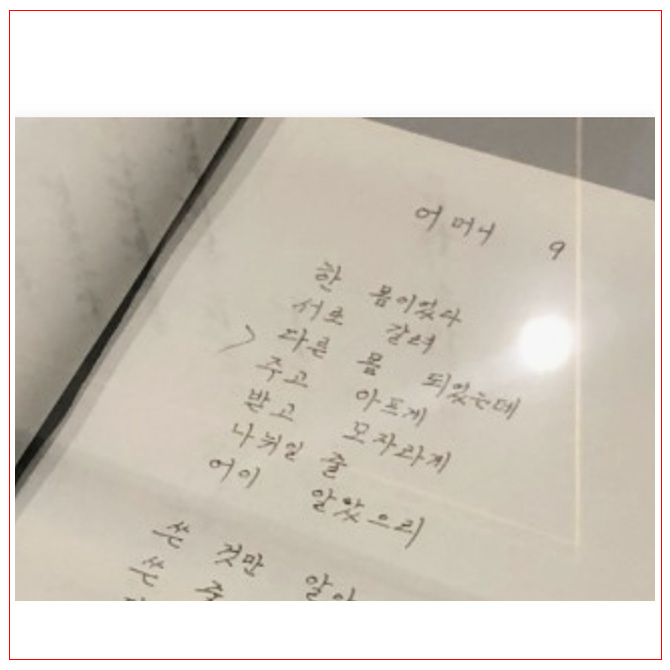 어머니 9
한 몸이었다
서로 갈려
다른 몸 되었는데
주고 아프게
받고 모자라게
나뉘일 줄
어이 알았으리
쓴 것만 알아
쓴 줄